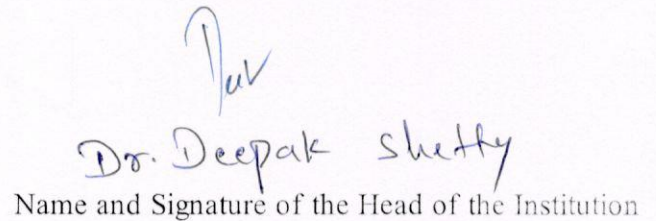 Dr. Deepak Shetty
Name and Signature of the Head of the Institution